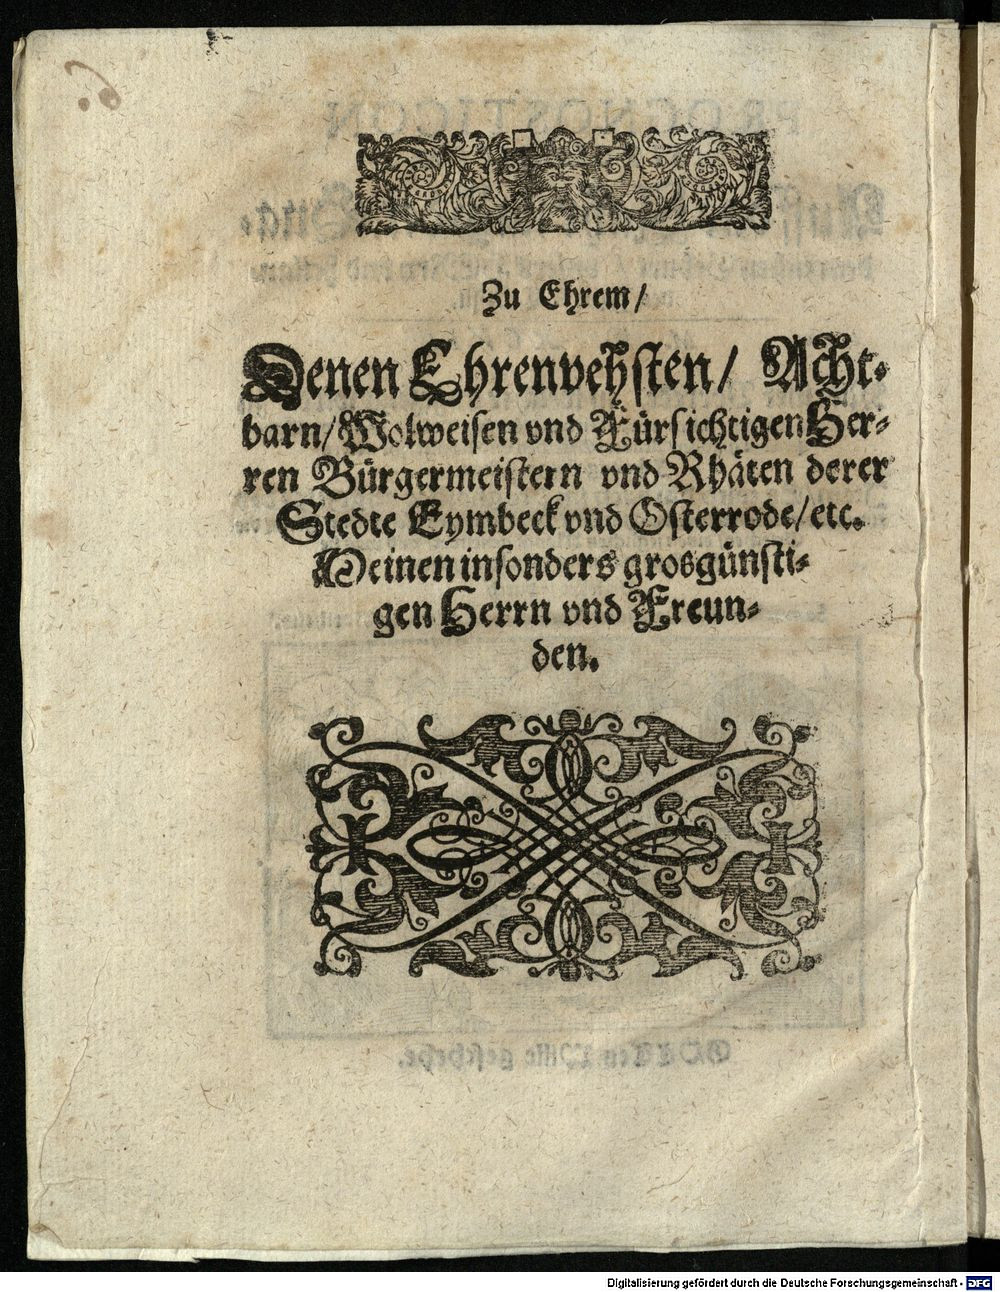 Zu Ehrem/
Denen Ehrenvehsten/ Acht-
barn/ Wolweisen vnd Fürsichtigen Her-
ren Bürgermeistern vnd Rhäten derer
Stedte Eymbeck vnd Osterrode/ etc.
Meinen insonders grosgünsti-
gen Herrn vnd Freun-
den.
Digitalisierung gefördert durch die Deutsche Forschungsgemeinschaft - DFG